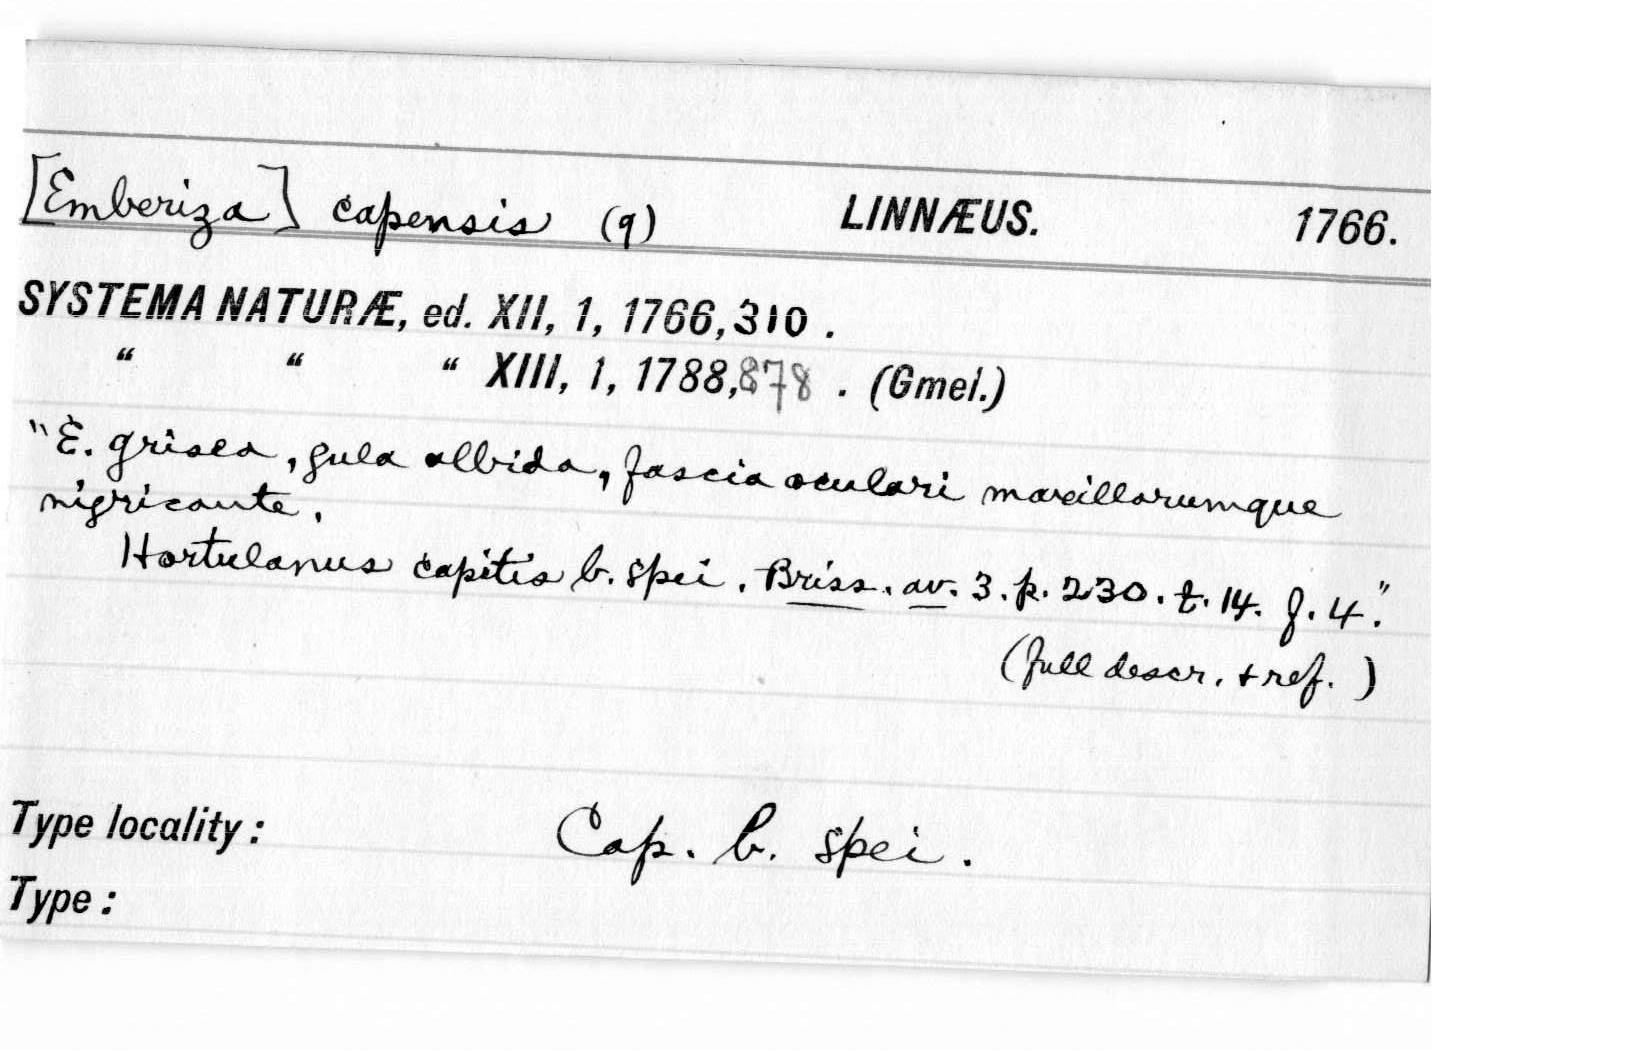 [Emberiza] capensis (9) LINNÆUS. 1766.
SYSTEMA NATURÆ, ed. XII, 1, 1766, 310 .
“ “ “ XIII, 1, 1788, 878 . (Gmel.)
"E. grisea, gula albida, fascia oculari maxillarumque
nigricante.
Hortulanus capitis b. spei. Briss. av. 3. p. 230. t. 14. f. 4."
(full descr. + ref. )
Type locality : Cap. b. spei.
Type :